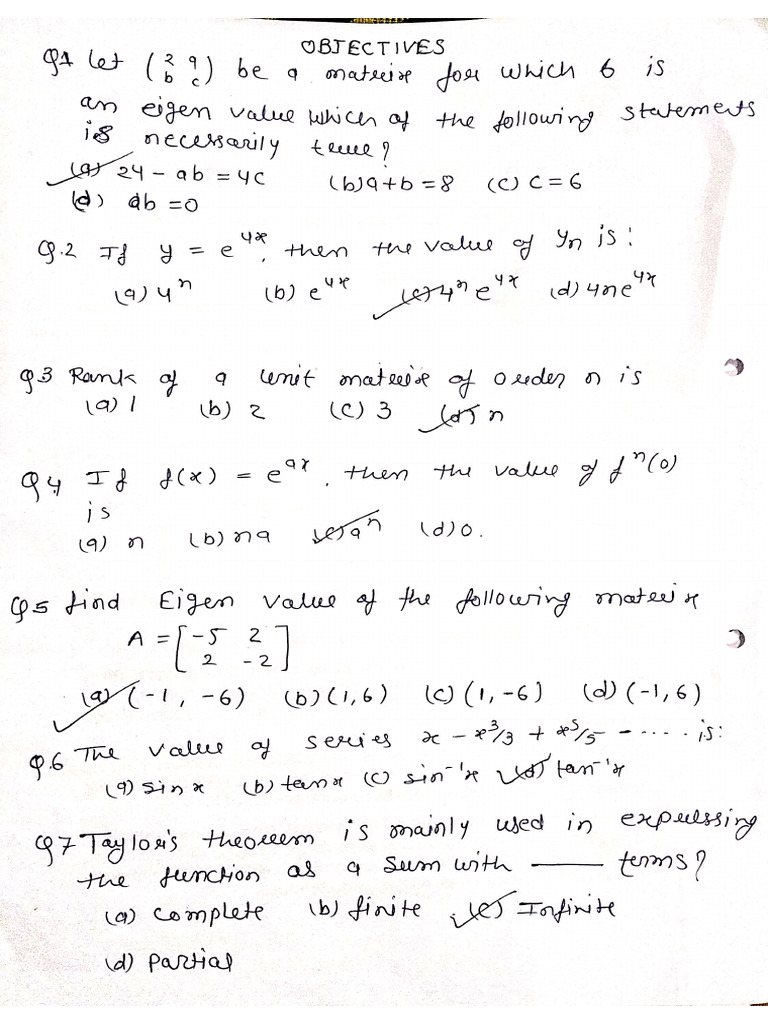 OBJECTIVES
Q1 Let (2 a
b c) be a matrix for which 6 is
an eigen value which of the following statements
is necessarily true?
(a) 24 - ab = 4c (b) a+b = 8 (c) c = 6
(d) ab = 0
Q.2 If y = e^4x, then the value of yn is:
(a) 4^n (b) e^4x (c) 4^n e^4x (d) 4ne^4x
Q3 Rank of a unit matrix of order n is
(a) 1 (b) 2 (c) 3 (d) n
Q4, If f(x) = e^ax, then the value of f^n(0)
is
(a) n (b) na (c) a^n (d) 0.
Q5 find Eigen value of the following matrix
A = [-5 2
2 -2]
(a) (-1, -6) (b) (1, 6) (c) (1, -6) (d) (-1, 6)
Q.6 The value of series x - x^3/3 + x^5/5 - .... is:
(a) sin x (b) tan x (c) sin^-1 x (d) tan^-1 x
Q7 Taylor's theorem is mainly used in expressing
the function as a sum with ____ terms?
(a) complete (b) finite (c) Infinite
(d) partial